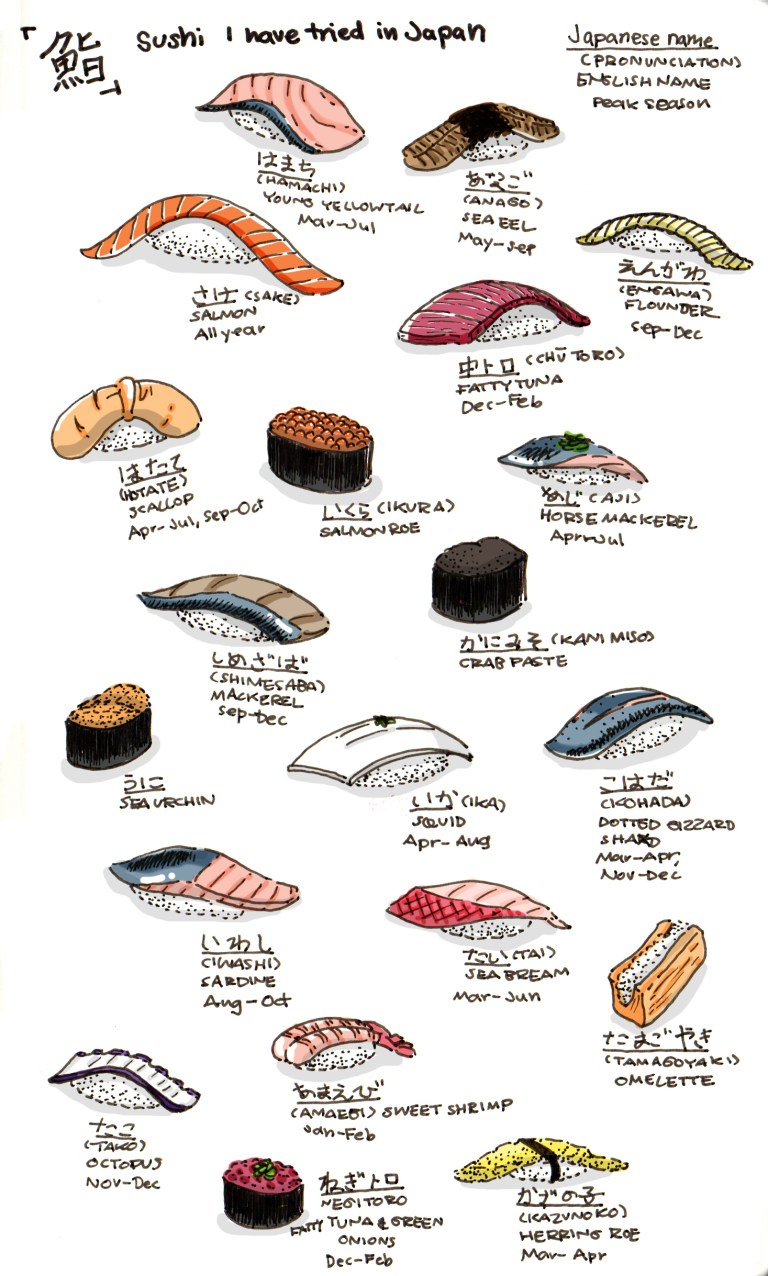 「鮨」
Sushi I have tried in Japan
Japanese name
(PRONUNCIATION)
ENGLISH NAME
Peak season
はまち
(HAMACHI)
YOUNG YELLOWTAIL
Mar-Jul
あなご
(ANAGO)
SEA EEL
May-Sep
さけ (SAKE)
SALMON
All year
えんがわ
(ENGAWA)
FLOUNDER
Sep-Dec
中トロ (CHŪ TORO)
FATTY TUNA
Dec-Feb
ほたて
(HOTATE)
SCALLOP
Apr-Jul, Sep-Oct
いくら (IKURA)
SALMON ROE
あじ (AJI)
HORSE MACKEREL
Apr-Jul
かにみそ (KANI MISO)
CRAB PASTE
しめさば
(SHIMESABA)
MACKEREL
Sep-Dec
うに
SEA URCHIN
いか (IKA)
SQUID
Apr-Aug
こはだ
(KOHADA)
DOTTED GIZZARD
SHAD
Mar-Apr,
Nov-Dec
いわし
(IWASHI)
SARDINE
Aug-Oct
たい (TAI)
SEA BREAM
Mar-Jun
たまごやき
(TAMAGOYAKI)
OMELETTE
あまえび
(AMAEBI) SWEET SHRIMP
Jan-Feb
たこ
(TAKO)
OCTOPUS
Nov-Dec
ねぎトロ
NEGITORO
FATTY TUNA & GREEN
ONIONS
Dec-Feb
かずの子
(KAZUNOKO)
HERRING ROE
Mar-Apr